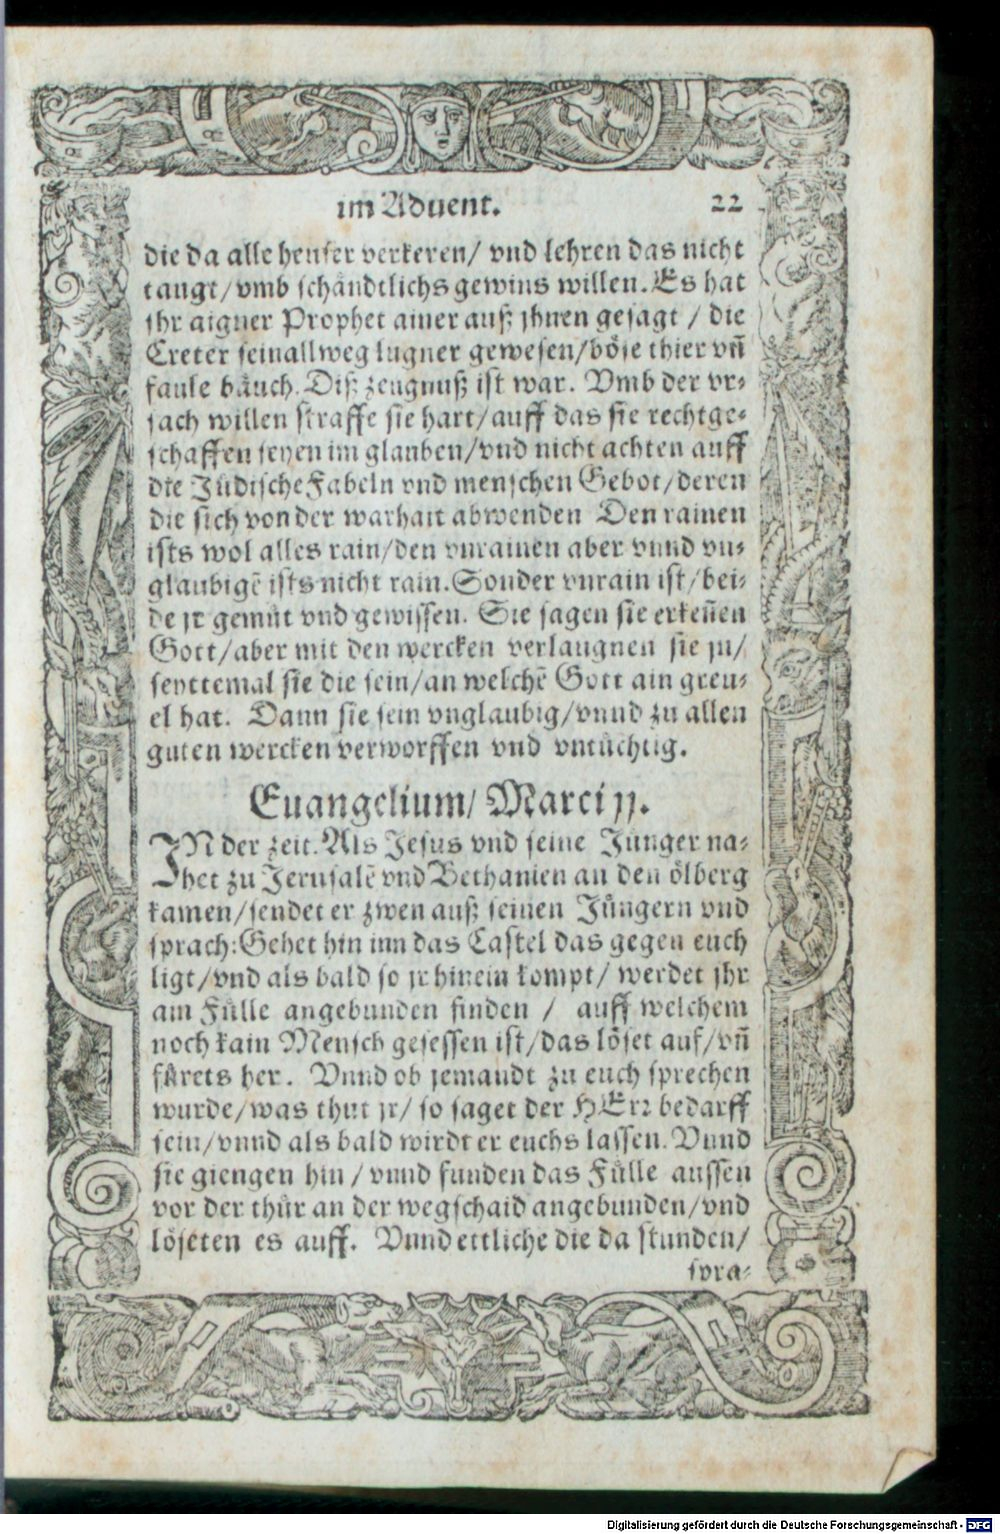 im Aduent. 22
die da alle heuser verkeren/ vnd lehren das nicht
taugt/vmb schändtlichs gewins willen. Es hat
jhr aigner Prophet ainer auß jhnen gesagt / die
Creter sein allweg lugner gewesen/böse thier vñ
faule bäuch. Diß zeugnuß ist war. Vmb der vr-
sach willen straffe sie hart/auff das sie rechtge-
schaffen seyen im glauben/vnd nicht achten auff
die Jüdische Fabeln vnd menschen Gebot/deren
die sich von der warhait abwenden Den rainen
ists wol alles rain/den vnrainen aber vnnd vn-
glaubigẽ ists nicht rain. Sonder vnrain ist/bei-
de jr gemüt vnd gewissen. Sie sagen sie erkeñen
Gott/aber mit den wercken verlaugnen sie jn/
seyttemal sie die sein/an welchẽ Gott ain greu-
el hat. Dann sie sein vnglaubig/vnnd zu allen
guten wercken verworffen vnd vntüchtig.
Euangelium/ Marci jj.
JN der zeit. Als Jesus vnd seine Jünger na-
het zu Jerusalẽ vnd Bethanien an den ölberg
kamen/sendet er zwen auß seinen Jüngern vnd
sprach: Gehet hin inn das Castel das gegen euch
ligt/vnd als bald so jr hinein kompt/ werdet jhr
ain Fülle angebunden finden / auff welchem
noch kain Mensch gesessen ist/das löset auf/vñ
fürets her. Vnnd ob jemandt zu euch sprechen
wurde/was thut jr/ so saget der HErr bedarff
sein/vnnd als bald wirdt er euchs lassen. Vnnd
sie giengen hin / vnnd funden das Fülle aussen
vor der thür an der wegschaid angebunden/vnd
löseten es auff. Vnnd ettliche die da stunden/
spra-
Digitalisierung gefördert durch die Deutsche Forschungsgemeinschaft - DFG